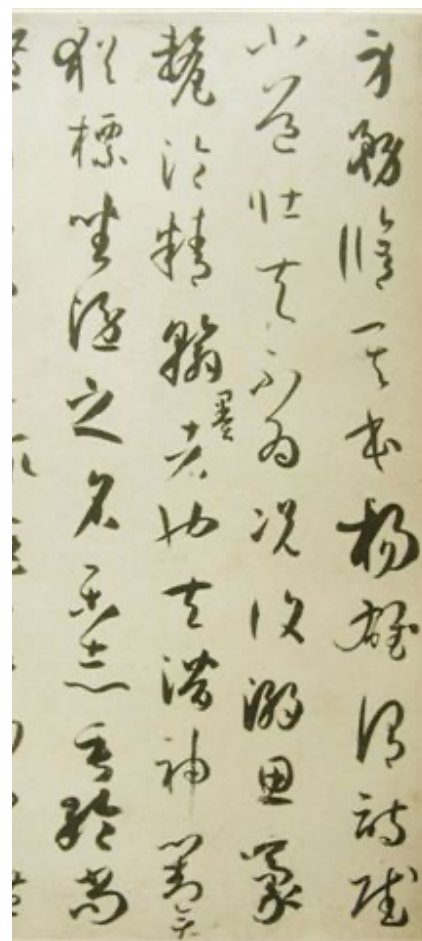 身務脩其本楊雄謂詩賦
小道壯夫不為況復溺思豪
氂淪精翰墨者也夫潛神對弈
猶標坐隱之名樂志垂綸尚